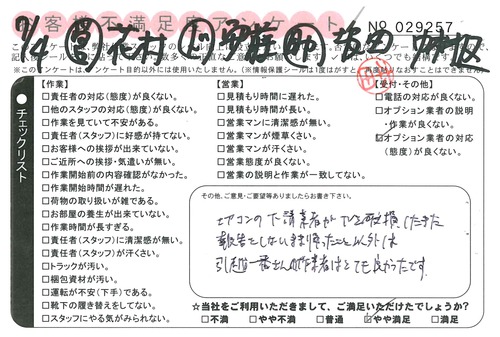 お客様不満足度アンケート
No 029257
7/4 ㊂ 花村
【作業】
□責任者の対応(態度)が良くない。
□他のスタッフの対応(態度)が良くない。
□作業を見ていて不安がある。
□責任者(スタッフ)に好感が持てない。
□お客様への挨拶が出来ていない。
□ご近所への挨拶・気遣いが無い。
□作業開始前の内容確認がなかった。
□作業開始時間が遅れた。
□荷物の取り扱いが雑である。
□お部屋の養生が出来ていない。
□作業時間が長すぎる。
□責任者(スタッフ)に清潔感が無い。
□責任者(スタッフ)が汗くさい。
□トラックが汚い。
□梱包資材が汚い。
□運転が不安(下手)である。
□靴下の履き替えをしてない。
□スタッフにやる気がみられない。
【営業】
□見積もり時間に遅れた。
□見積もり時間が長い。
□営業マンに清潔感が無い。
□営業マンが煙草くさい。
□営業マンが汗くさい。
□営業態度が良くない。
□営業の説明と作業が一致してない。
【受付・その他】
□電話の対応が良くない。
□オプション業者の説明・作業が良くない。
☑オプション業者の対応(態度)が良くない。
チェックリスト
その他、ご意見・ご要望等ありましたらお書き下さい。
エアコンの下請業者が
報告をしないまま帰ったこと以外は
引越一番さんの作業者はとても良かったです。
☆当社をご利用いただきまして、ご満足いただけたでしょうか?
□不満 □やや不満 □普通 ☑やや満足 □満足